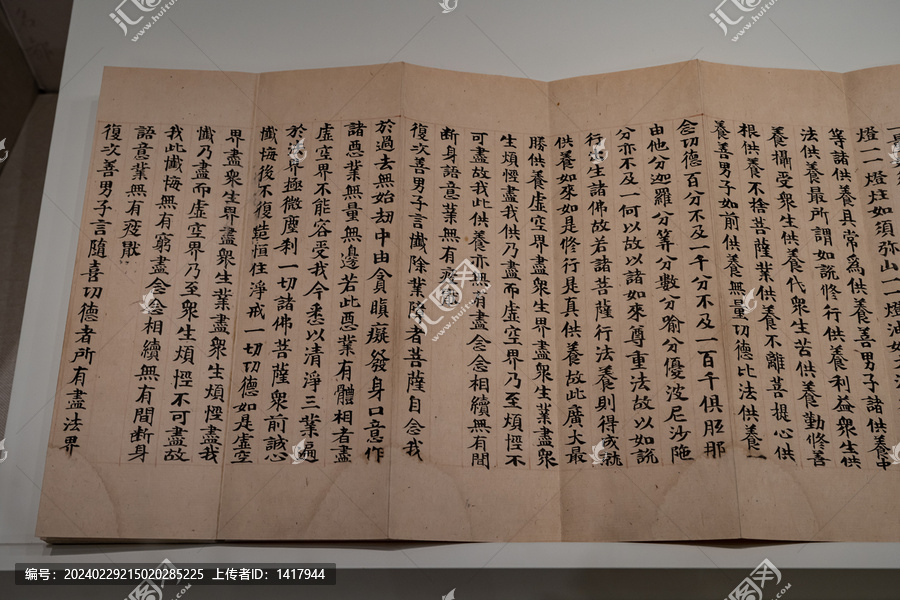 燈一一燈炷如須彌山一一燈油如大
等諸供養具常為供養善男子諸供養中
法供養最所謂如說修行供養利益衆生供
養攝受衆生供養代衆生苦供養勤修善
根供養不捨菩薩業供養不離菩提心供
養善男子如前供養無量功德比法供養一
念功德百分不及一千分不及一百千俱胝那
由他分迦羅分筭分數分喻分優波尼沙陁
分亦不及一何以故以諸如來尊重法故以如說
行出生諸佛故若諸菩薩行法養則得成就
供養如來如是修行是真供養故此廣大最
勝供養虛空界盡衆生界盡衆生業盡衆
生煩惱盡我供乃盡而虛空界乃至煩惱不
可盡故我此供養亦無有盡念念相續無有間
斷身語意業無有疲猒
復次善男子言懺除業障者菩薩自念我
於過去無始劫中由貪瞋癡發身口意作
諸惡業無量無邊若此惡業有體相者盡
虛空界不能容受我今悉以清淨三業遍
於法界極微塵刹一切諸佛菩薩衆前誠心
懺悔後不復造恒住淨戒一切功德如是虛空
界盡衆生界盡衆生業盡衆生煩惱盡我
懺乃盡而虛空界乃至衆生煩惱不可盡故
我此懺悔無有窮盡念念相續無有間斷身
語意業無有疲猒
復次善男子言隨喜功德者所有盡法界
编号：20240229215020285225 上传者ID：1417944